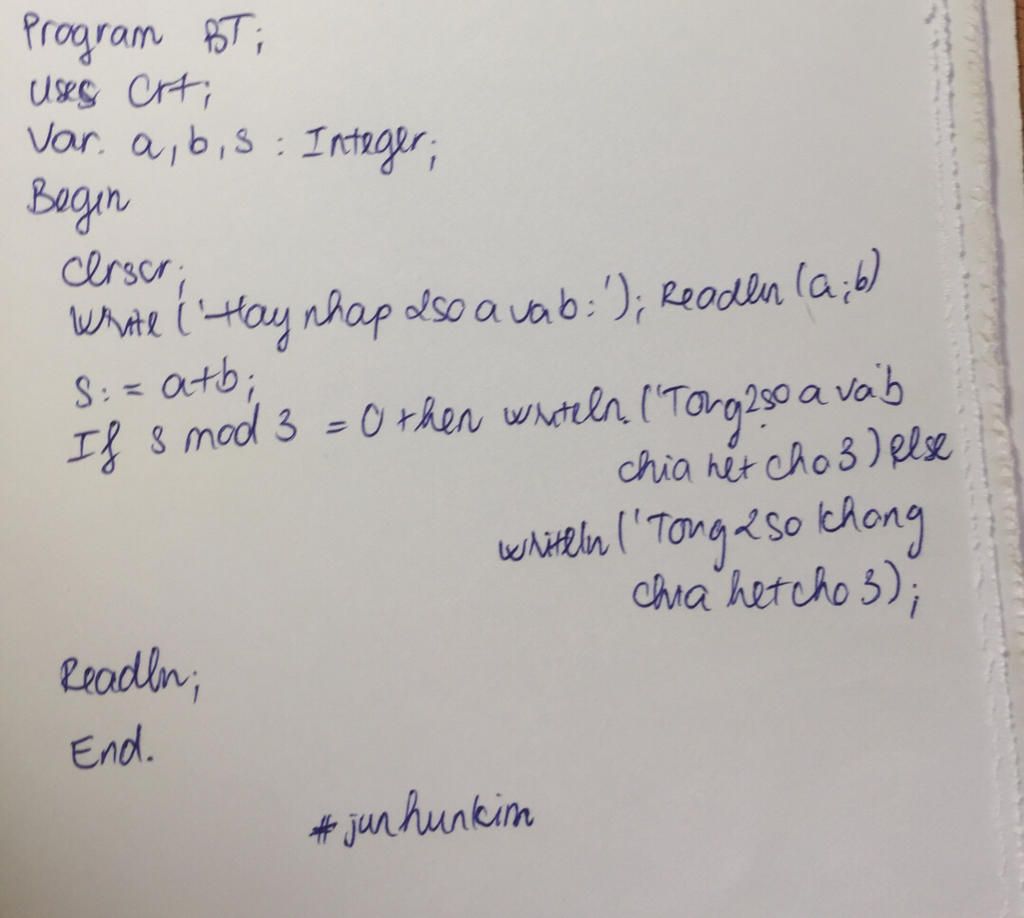 Program BT;
Uses Crt;
Var. a, b, s : Integer;
Begin
Clrscr;
Write ('Hay nhap 2 so a va b : '); Readln (a;b)
S: = a+b;
If s mod 3 = 0 then writeln. ('Tong 2 so a va b
chia het cho 3) Else
writeln ('Tong 2 so khong
chia het cho 3);
Readln;
End.
#junhunkim